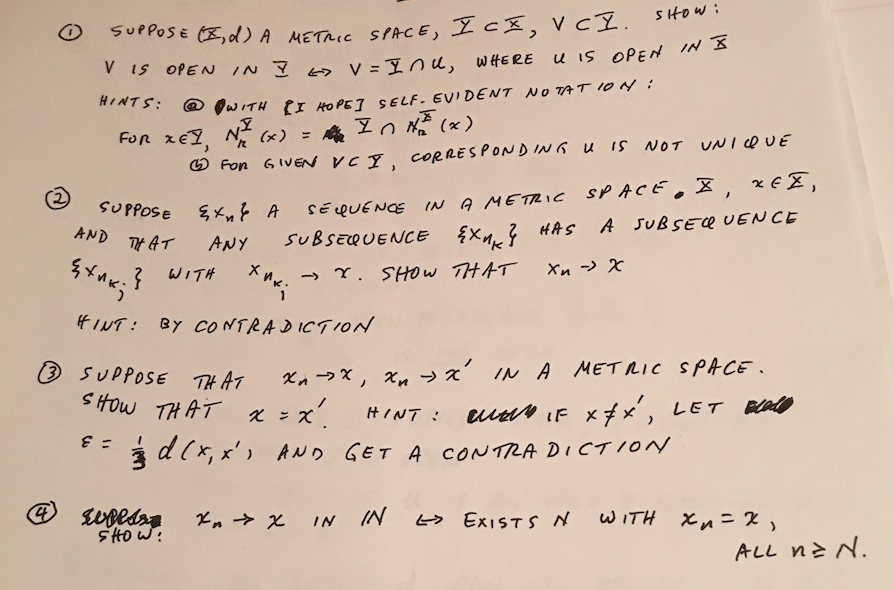 ① SUPPOSE (X,d) A METRIC SPACE, Y ⊂ X, V ⊂ Y. SHOW:
V IS OPEN IN Y ↔ V = Y ∩ U, WHERE U IS OPEN IN X
HINTS: ⓐ WITH [I HOPE] SELF-EVIDENT NOTATION:
FOR x ∈ Y, N_r^Y (x) = Y ∩ N_r^X (x)
ⓑ FOR GIVEN V ⊂ Y, CORRESPONDING U IS NOT UNIQUE
② SUPPOSE {x_n} A SEQUENCE IN A METRIC SPACE X, x ∈ X,
AND THAT ANY SUBSEQUENCE {x_{n_k}} HAS A SUBSEQUENCE
{x_{n_{k_j}}} WITH x_{n_{k_j}} → x. SHOW THAT x_n → x
HINT: BY CONTRADICTION
③ SUPPOSE THAT x_n → x, x_n → x' IN A METRIC SPACE.
SHOW THAT x = x'. HINT: IF x ≠ x', LET
ε = 1/3 d(x, x') AND GET A CONTRADICTION
④ x_n → x IN ℕ ↔ EXISTS N WITH x_n = x,
SHOW:
ALL n ≥ N.